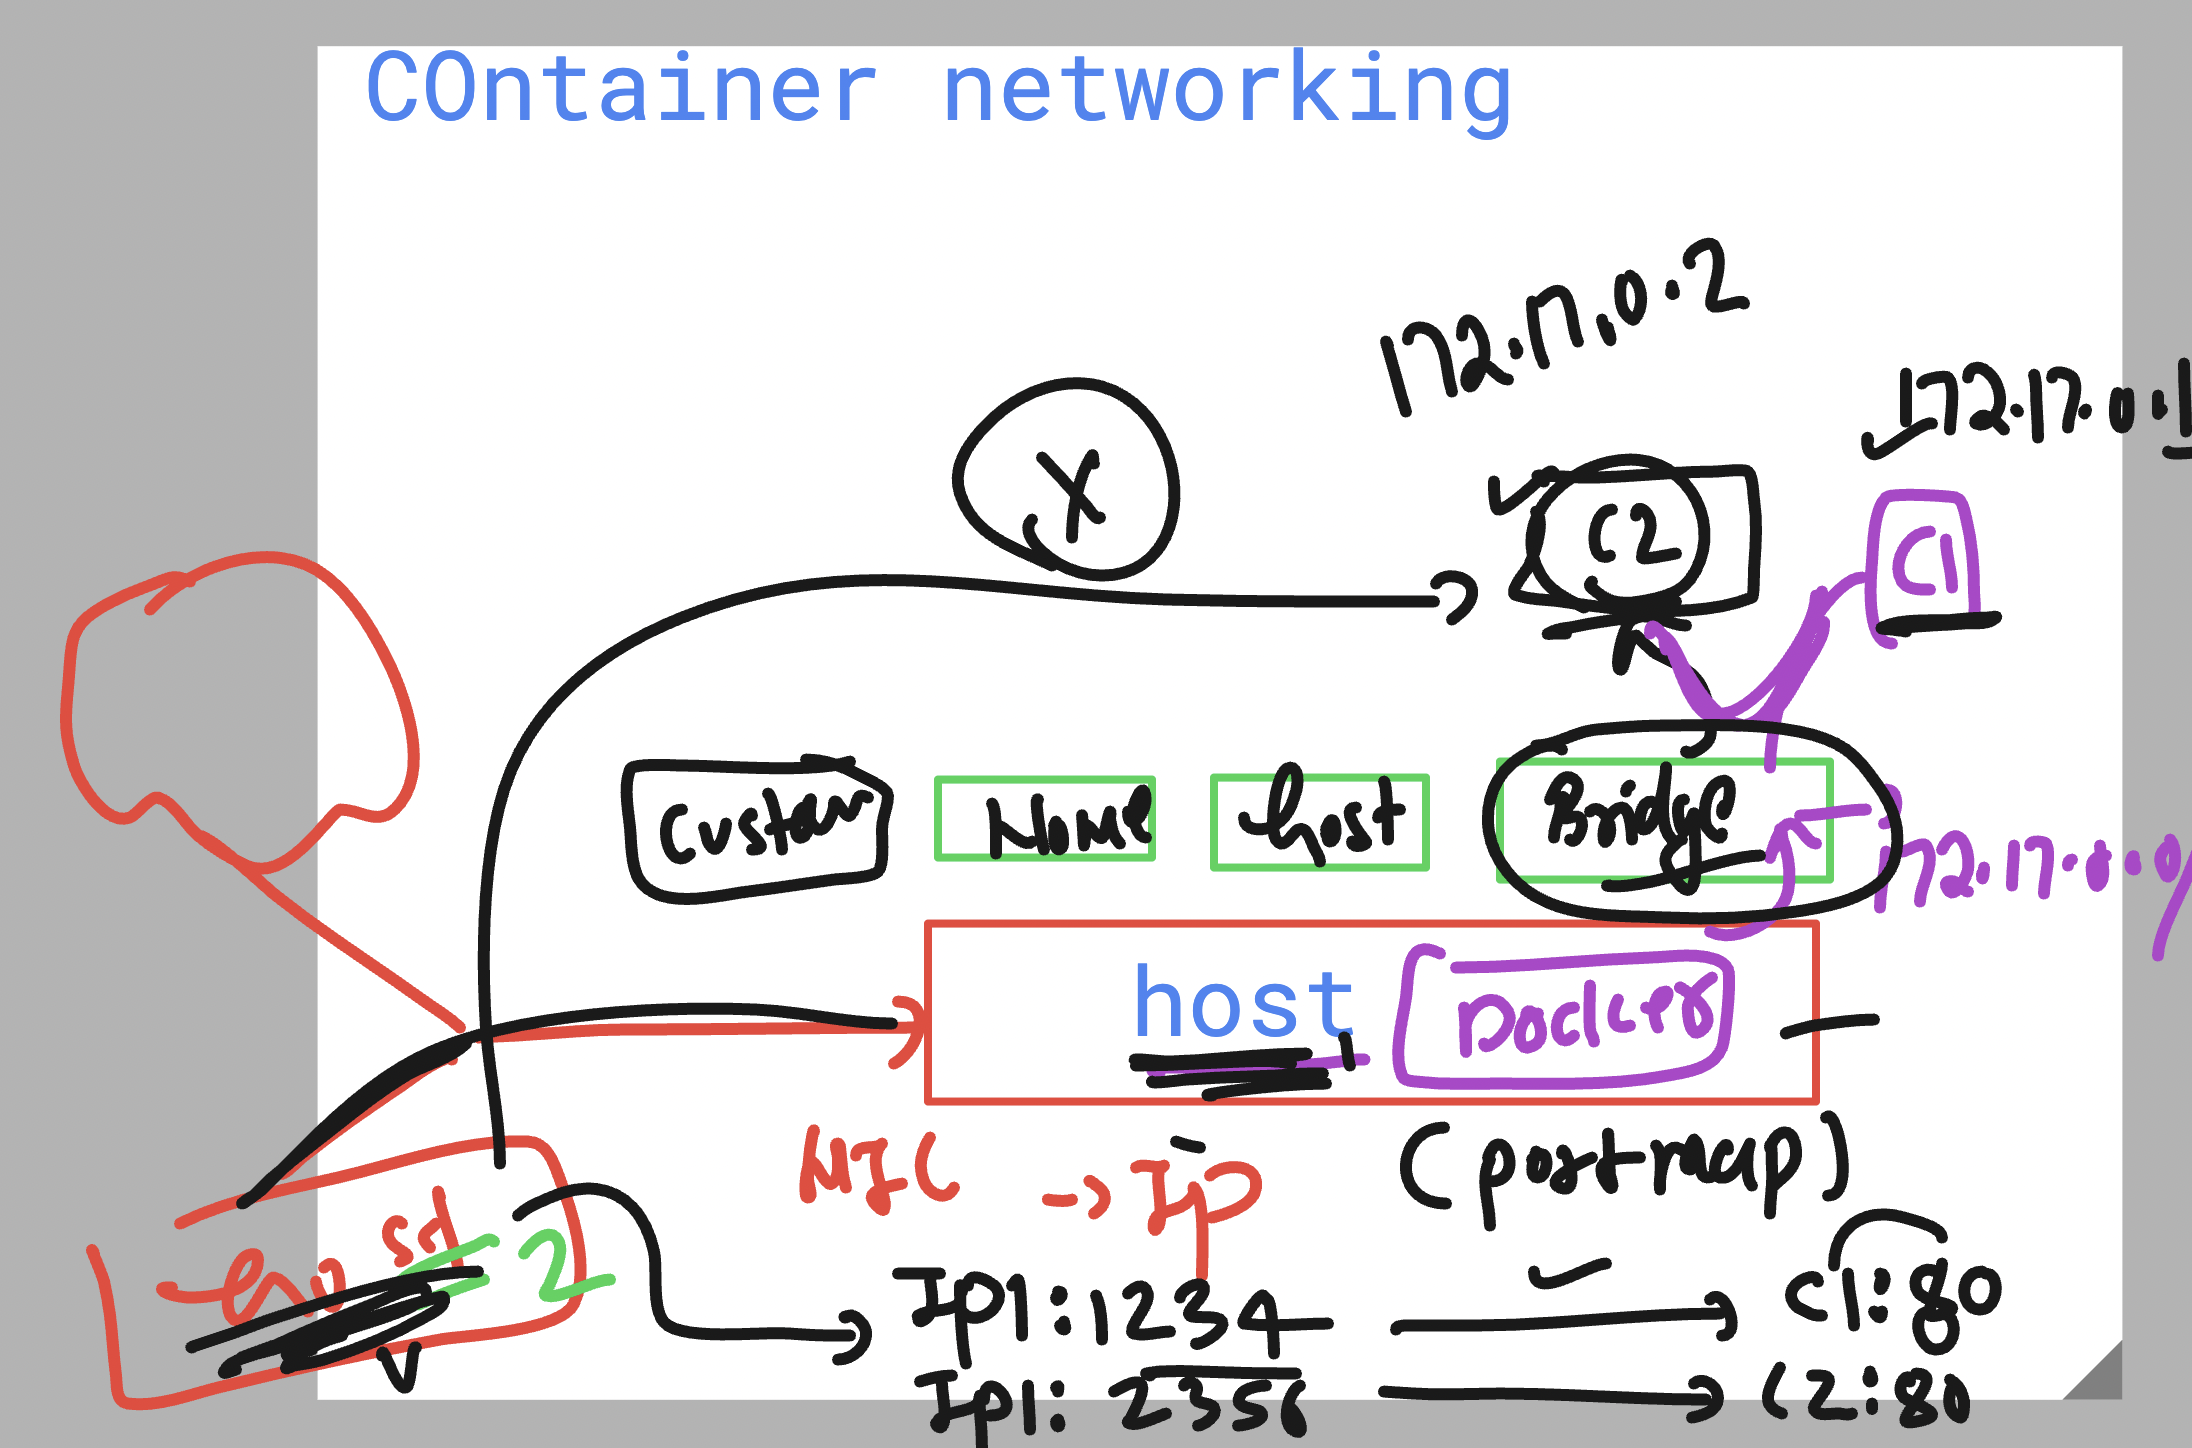 COntainer networking
172.17.0.2
172.17.0.1
X
C2
C1
Custom
None
host
Bridge
172.17.0.0/
host
Docker
NIC
-> Ip
(portmap)
2
Ip1:1234
C1:80
Ip1: 2356
C2:80